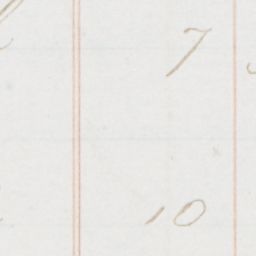 7
10